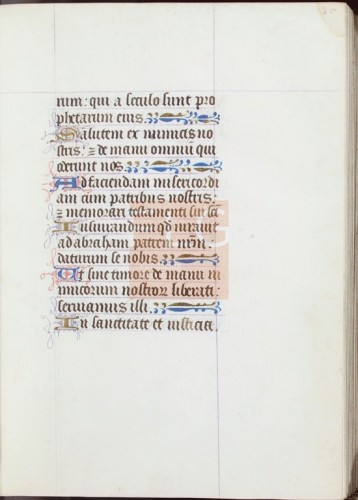 rum: qui a seculo sunt pro
phetarum eius.
Salutem ex inimicis no
stris: ⁊ de manu omniū qui
oderunt nos.
Ad faciendam misericordi
am cum patribus nostris:
⁊ memorari testamenti sui sa
Iusiurandum qđ iurauit
ad abraham patrem nr̄m:
daturum se nobis.
Ut sine timore de manu in
imicorum nostror liberati:
seruiamus illi.
In sanctitate et iusticia